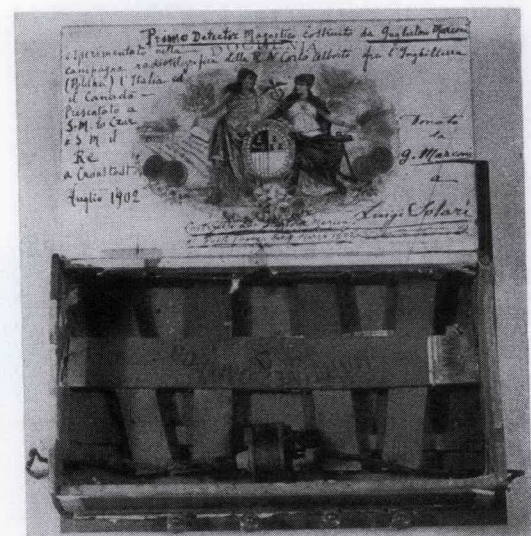 Primo Detector Magnetico costruito da Guglielmo Marconi
esperimentato nella
campagna radiotelegrafica della R. N. Carlo Alberto fra l'Inghilterra
(Poldhu) l'Italia ed
il Canadà —
Presentato a
S. M. lo Czar
e S M il
Re
a Cronstadt
Luglio 1902
Donato
da
G. Marconi
a
Luigi Solari